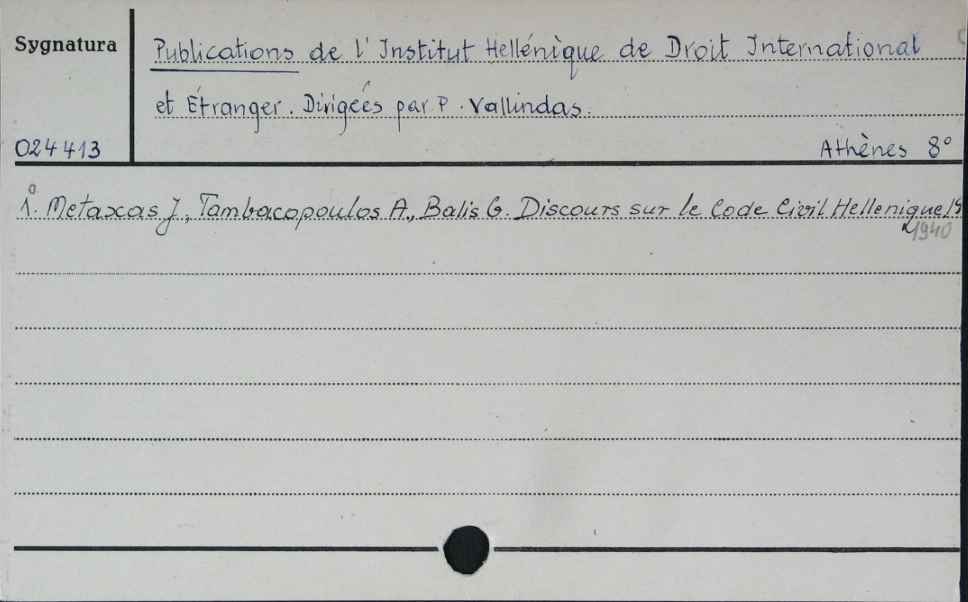 Sygnatura
Publications de l'Institut Hellénique de Droit International
et Étranger. Dirigées par P. Vallindas.
024413
Athènes 8°
1. Metaxas J., Tambacopoulos A., Balis G. Discours sur le Code Civil Hellenique
1940